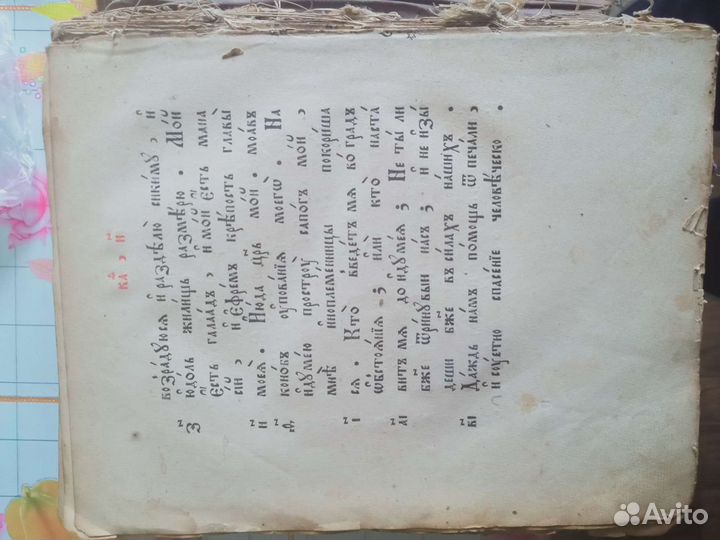 ка҃ , и҃
возра́дꙋюсѧ и҆ раздѣлю̀ сики́мꙋ , и҆
з҃ ю҆до́ль жили́щь размѣ́рю . Мо́й
є҆́сть галаа́дъ , и҆ мо́й є҆́сть мана
сі́й , и҆ є҆фре́мъ крѣ́пость главы̀
и҃ моеѧ̀ . І҆ю́да цр҃ь мо́й . моа́въ
д҃ коно́бъ ᲂу҆пова́нїѧ моегѡ̀ . На
и҆дꙋме́ю прострꙋ̀ сапо́гъ мо́й ,
мнѣ̀ и҆ноплеме́нницы покори́ша
і҃ сѧ . Кто̀ введе́тъ мѧ во́ градъ
ѡ҆бстоѧ́нїѧ ; и҆лѝ кто̀ наста́
а҃і витъ мѧ до и҆дꙋме́ѧ ; Не ты́ ли
бж҃е ѿри́нꙋвый на́съ ; и҆ не и҆зы́
деши бж҃е въ си́лахъ на́шихъ .
в҃і Да́ждь на́мъ по́мощь ѿ печа́ли ,
и҆ сꙋ́етно спасе́нїе человѣ́ческо .
Avito